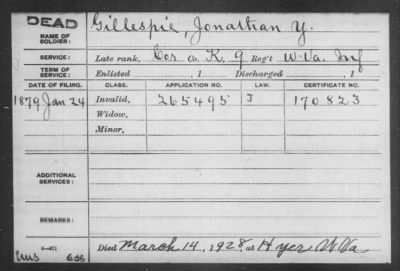 DEAD
NAME OF SOLDIER:
Gillespie, Jonathan Y.
SERVICE:
Late rank, Cor Co. K, 9 Reg't W. Va. Inf
TERM OF SERVICE:
Enlisted , 1 Discharged , 1
DATE OF FILING. CLASS. APPLICATION NO. LAW. CERTIFICATE NO.
1879 Jan 24 Invalid, 265495 J 170823
Widow,
Minor,
ADDITIONAL SERVICES:
REMARKS:
Died March 14, 1928, at Hyer W Va